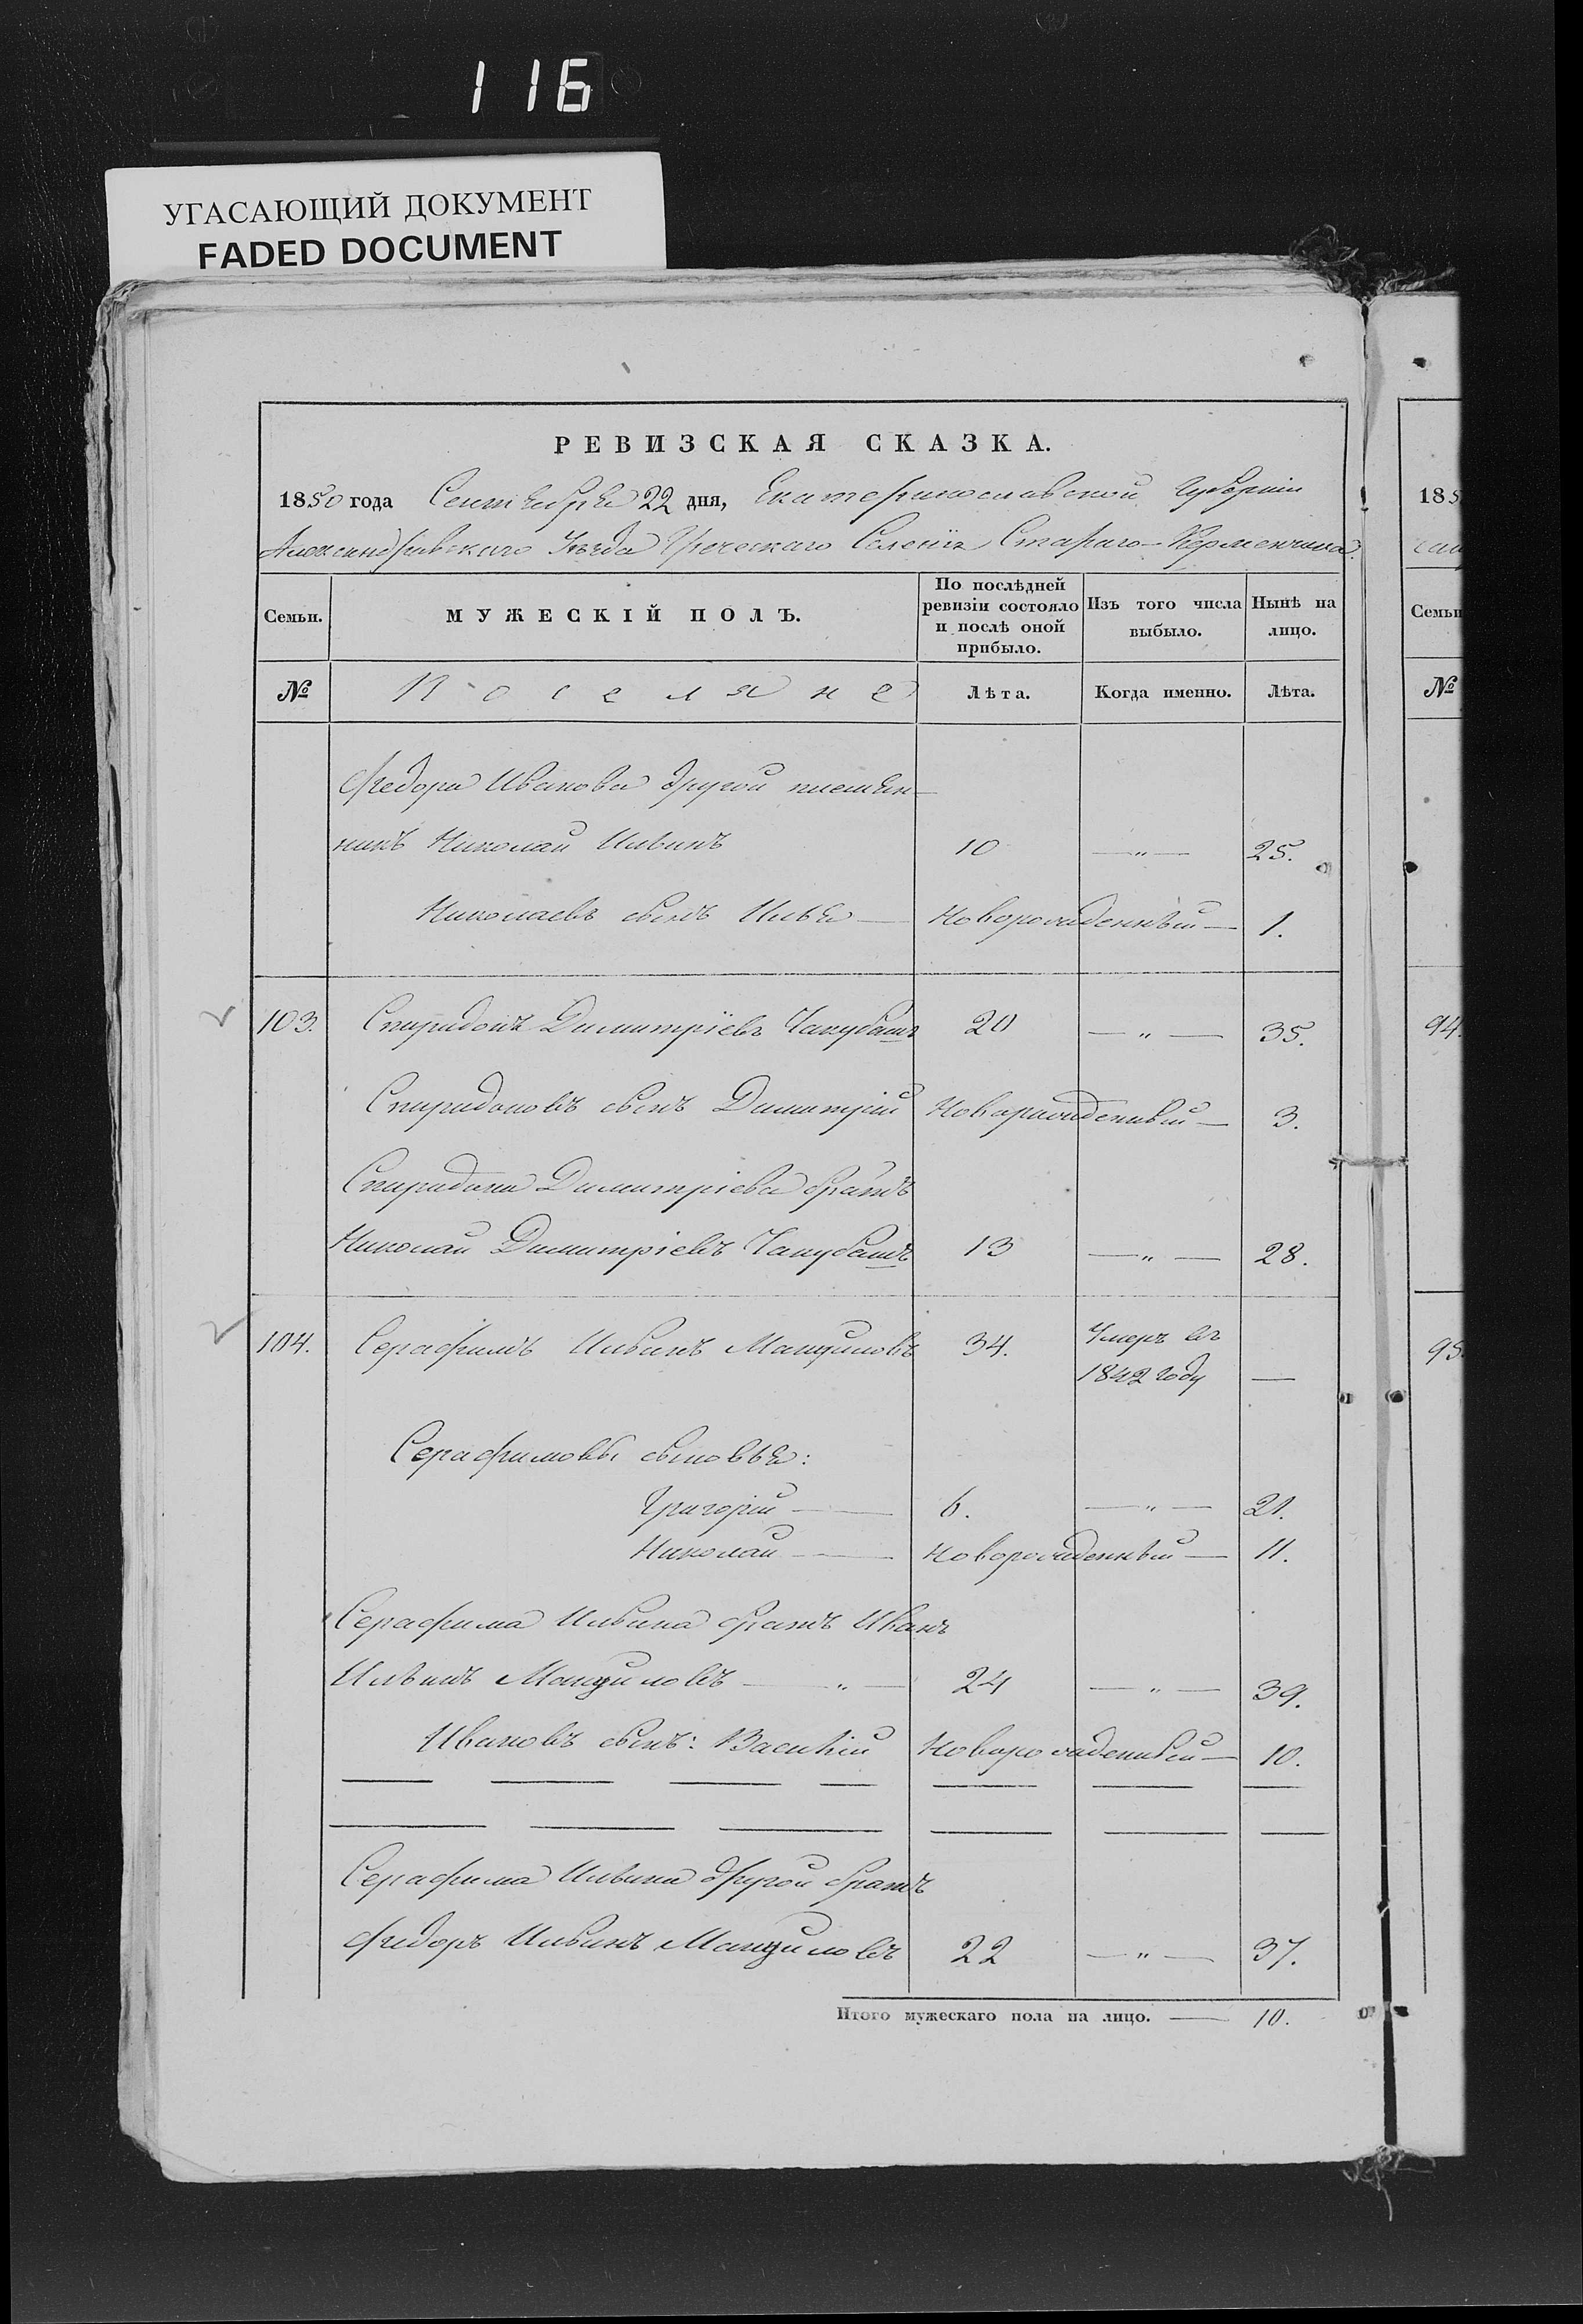 116
УГАСАЮЩИЙ ДОКУМЕНТ
FADED DOCUMENT
РЕВИЗСКАЯ СКАЗКА.
1850 года Сентября 22 дня, Екатеринославской Губернии
Александровскаго Уѣзда Греческаго Селенія Стараго-Керменчика.
Семьи.
МУЖЕСКІЙ ПОЛЪ.
По послѣдней ревизіи состояло и послѣ оной прибыло.
Изъ того числа выбыло.
Нынѣ на лицо.
№ Поселяне Лѣта. Когда именно. Лѣта.
Федора Иванова другой племян-
никъ Николай Ильинъ 10 —„— 25.
Николаевъ сынъ Илья — Новорожденный — 1.
103. Спиридонъ Димитріевъ Чакубашъ 20 —„— 35.
Спиридоновъ сынъ Димитрій Новорожденный — 3.
Спиридона Димитріева братъ
Николай Димитріевъ Чакубашъ 13 —„— 28.
104. Серафимъ Ильинъ Манциловъ 34. Умеръ въ
1842 году —
Серафимовы сыновья:
Григорій — 6. —„— 21.
Николай — Новорожденный — 11.
Серафима Ильина братъ Иванъ
Ильинъ Манциловъ —„— 24 —„— 39.
Ивановъ сынъ: Василій Новорожденный — 10.
Серафима Ильина другой братъ
Федоръ Ильинъ Манциловъ 22 —„— 37.
Итого мужескаго пола на лицо. — 10.
185
Семьи
№
94.
95.